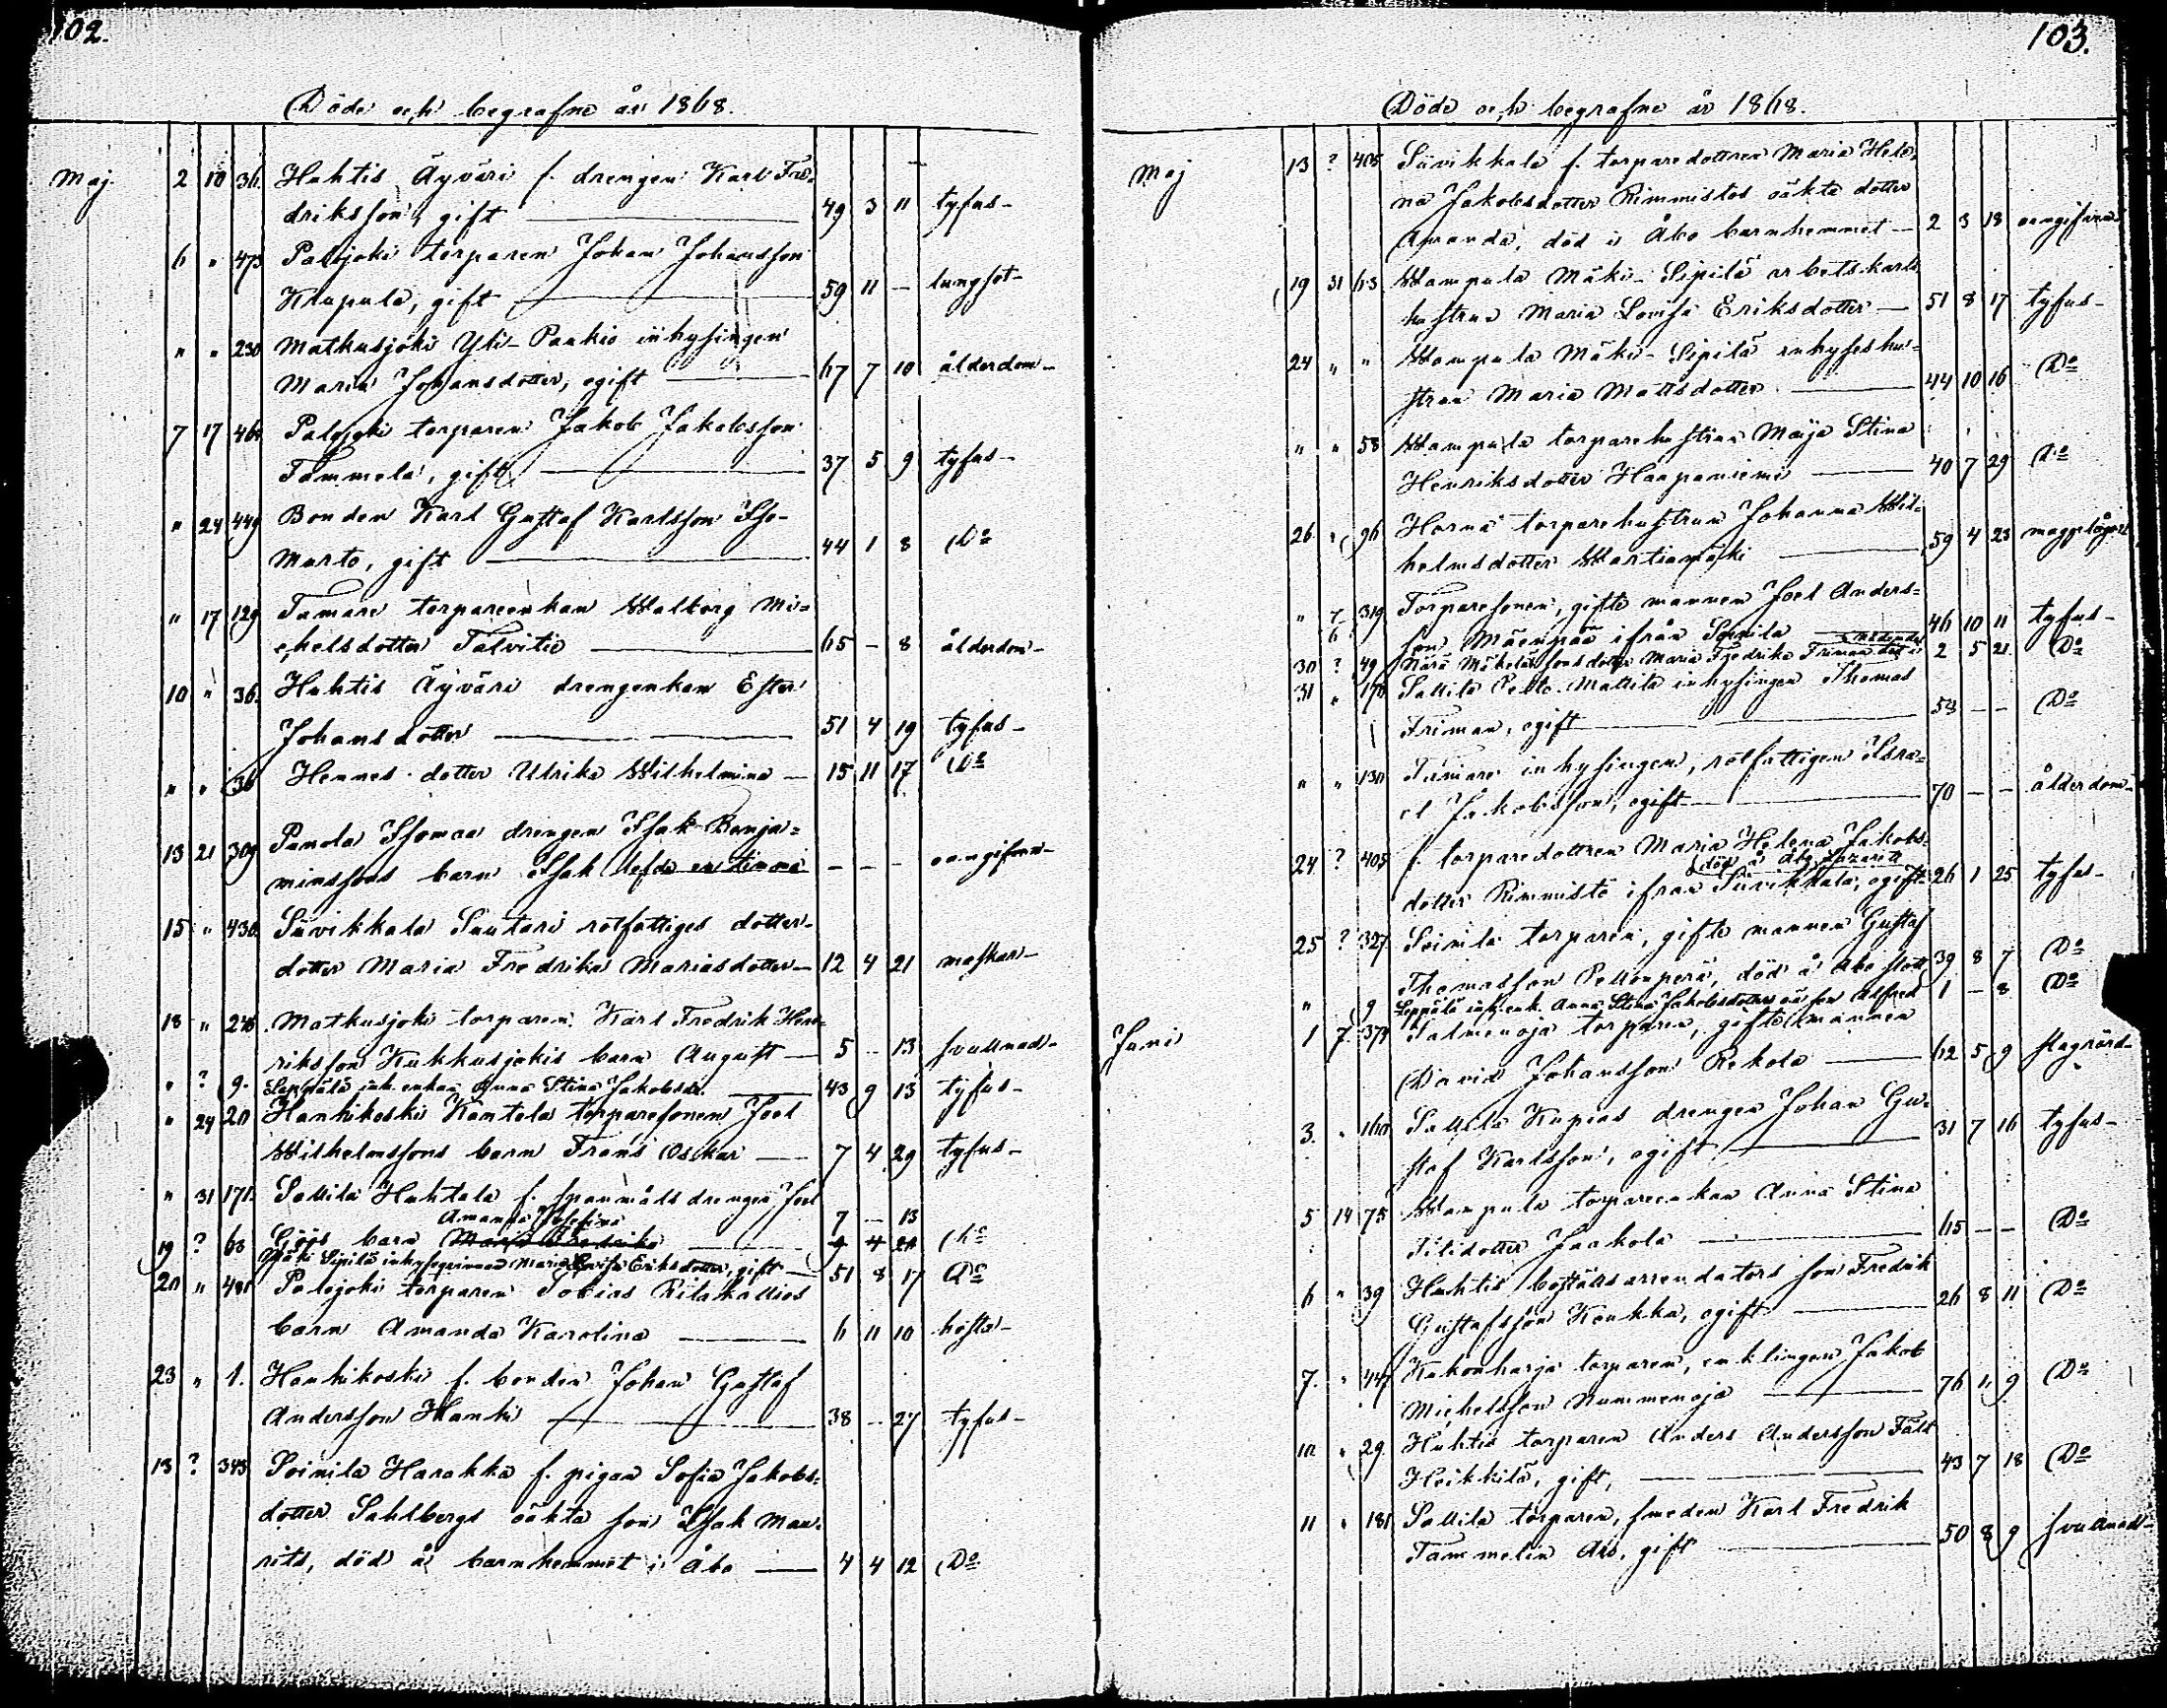 102.
Döde och begrafne år 1868.
Maj. 2 10 36. Huhtis Äyväri f. drengen Karl Fre-
driksson, gift 49 3 11 tyfus-
6 " 473 Palojoki torparen Johan Johansson
Krapula, gift 59 11 - lungsot-
" " 230 Matkusjoki Yli-Paakio inhysingen
Maria Johansdotter, ogift 67 7 10 ålderdom-
7 17 46 Palojoki torparen Jakob Jakobsson
Tammela, gift 37 5 9 tyfus-
" 24 449 Bonden Karl Gustaf Karlsson Iso-
Murto, gift 44 1 8 Do
" 17 129 Tamare torpareenkan Walborg Mi-
chelsdotter Talvitie 65 - 8 ålderdom-
10 " 36. Huhtis Äyväri drengenkan Ester
Johansdotter 51 4 19 tyfus-
" " 36 Hennes dotter Ulrika Wilhelmina - 15 11 17 Do
13 21 309 Panola Isomaa drengen Isak Benja-
minssons barn Isak lefde en timme - - - oangifven-
15 " 430. Siivikkala Suutari rotfattiges dotter-
dotter Maria Fredrika Mariasdotter - 12 4 21 maskar-
18 " 246. Matkusjoki torparen Karl Fredrik Hen-
riksson Kukkusjokis barn August - 5 - 13 svullnad-
" ? 9. Seppälä inh. enkan Anna Stina Jakobsdr. 43 9 13 tyfus-
" 24 20 Hanhikoski Kamtela torparesonen Joel
Wilhelmssons barn Frans Oskar - 7 4 29 tyfus-
" 31 171. Sallila Huhtala f. spanmåls drengen Joel
Amanda Josefina 7 - 13
Göös barn Maria Fredrika 9 4 21 Do
19 ? 63 Mäki Sipilä inhyseqvinnan Maria Lovisa Eriksdotter, gift - 51 8 17 Do
20 " 481 Palojoki torparen Tobias Ritakallios
barn Amanda Karolina 6 11 10 hosta-
23 " 1. Hanhikoski f. bonden Johan Gustaf
Andersson Hanhi 38 - 27 tyfus-
13 ? 343 Soinila Harakka f. pigan Sofia Jakobs-
dotter Sahlbergs oäkta son Isak Mau-
rits, död å barnhemmet i Åbo 4 4 12 Do
103.
Döde och begrafne år 1868.
Maj 13 ? 405 Siivikkala f. torparedottren Maria Hele-
na Jakobsdotter Rimmistös oäkta dotter
Amanda, död i Åbo barnhemmet - 2 3 18 oangifven
19 31 63 Wampula Mäki-Sipilä arbetskarls
hustrun Maria Lovisa Eriksdotter - 51 8 17 tyfus-
24 " " Wampula Mäki-Sipilä inhyseshu-
strun Maria Mattsdotter 44 10 16 Do
" " 58 Wampula torparehustrun Maija Stina
Henriksdotter Haapaniemi 40 7 29 Do
26 " 96 Horna torparehustrun Johanna Wil-
helmsdotter Wartiamäki 59 4 23 magplågor
" 7/6 319 Torparesonen, gifte mannen Joel Anders-
son Mäenpää ifrån Soinila 46 10 11 tyfus-
30 ? 49 Närä Mäkelä sonsdotter Maria Fredrika Friman 2 5 21 Do
31 " 170 Sallila Pelto-Mattila inhysingen Thomas
Friman, ogift 58 - - Do
" " 130 Tamare inhysingen, rotfattigen Isra-
el Jakobsson, ogift 70 - - ålderdom-
24 ? 405 f. torparedottren Maria Helena Jakobs-
död å Åbo Lazarett
dotter Rimmistö ifrån Siivikkala, ogift 26 1 25 tyfus-
25 ? 327 Soinila torparen, gifte mannen Gustaf
Thomasson Pellonperä, död å Åbo slott 39 8 7 Do
" 9 Seppälä inh. enk. Anna Stina Jakobsdotters oä son Alfred 1 - 8 Do
Juni 1 7 371 Salmenoja torparen, gifte mannen
David Johansson Rekola 62 5 9 slagvärd-
3. " 160 Sallila Kupias drengen Johan Gu-
staf Karlsson, ogift 31 7 16 tyfus-
5 14 75 Wampula torpareenkan Anna Stina
Filidotter Jaakola 65 - - Do
6 " 39 Huhtis boställsarrendators son Fredrik
Gustafsson Keukka, ogift 26 8 11 Do
7. " 447 Kakonharja torparen, enklingen Jakob
Michelsson Nummenoja 76 1 9 Do
10 " 29. Huhtis torparen Anders Andersson Fält
Heikkilä, gift, 43 7 18 Do
11 " 181 Sallila torparen, smeden Karl Fredrik
Tammelin Alo, gift 50 8 9 svullnad-